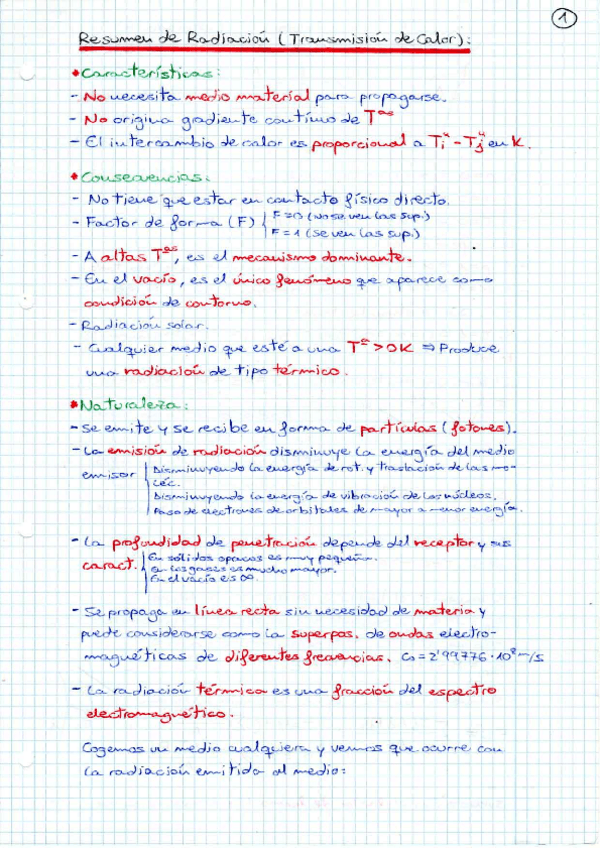 1
Resumen de Radiación (Transmisión de Calor):
• Características:
- No necesita medio material para propagarse.
- No origina gradiente contínuo de Tªˢ
- El intercambio de calor es proporcional a Ti⁴ - Tj⁴ en K.
• Consecuencias:
- No tiene que estar en contacto físico directo.
- Factor de forma (F) { F=0 (No se ven las sup.)
F=1 (se ven las sup.)
- A altas Tªˢ, es el mecanismo dominante.
- En el vacío, es el único fenómeno que aparece como
condición de contorno.
- Radiación solar.
- Cualquier medio que esté a una Tª > 0K ⇒ Produce
una radiación de tipo térmico.
• Naturaleza:
- Se emite y se recibe en forma de partículas (fotones).
- La emisión de radiación disminuye la energía del medio
emisor | Disminuyendo la energía de rot. y traslación de las mo-
léc.
Disminuyendo la energía de vibración de los núcleos.
Paso de electrones de orbitales de mayor a menor energía.
- La profundidad de penetración depende del receptor y sus
caract. | En sólidos opacos es muy pequeña.
En los gases es mucho mayor.
En el vacío es ∞.
- Se propaga en línea recta sin necesidad de materia y
puede considerarse como la superpos. de ondas electro-
magnéticas de diferentes frecuencias. C₀ = 2'99776·10⁸ m/s
- La radiación térmica es una fracción del espectro
electromagnético.
Cogemos un medio cualquiera y vemos que ocurre con
la radiación emitida al medio: